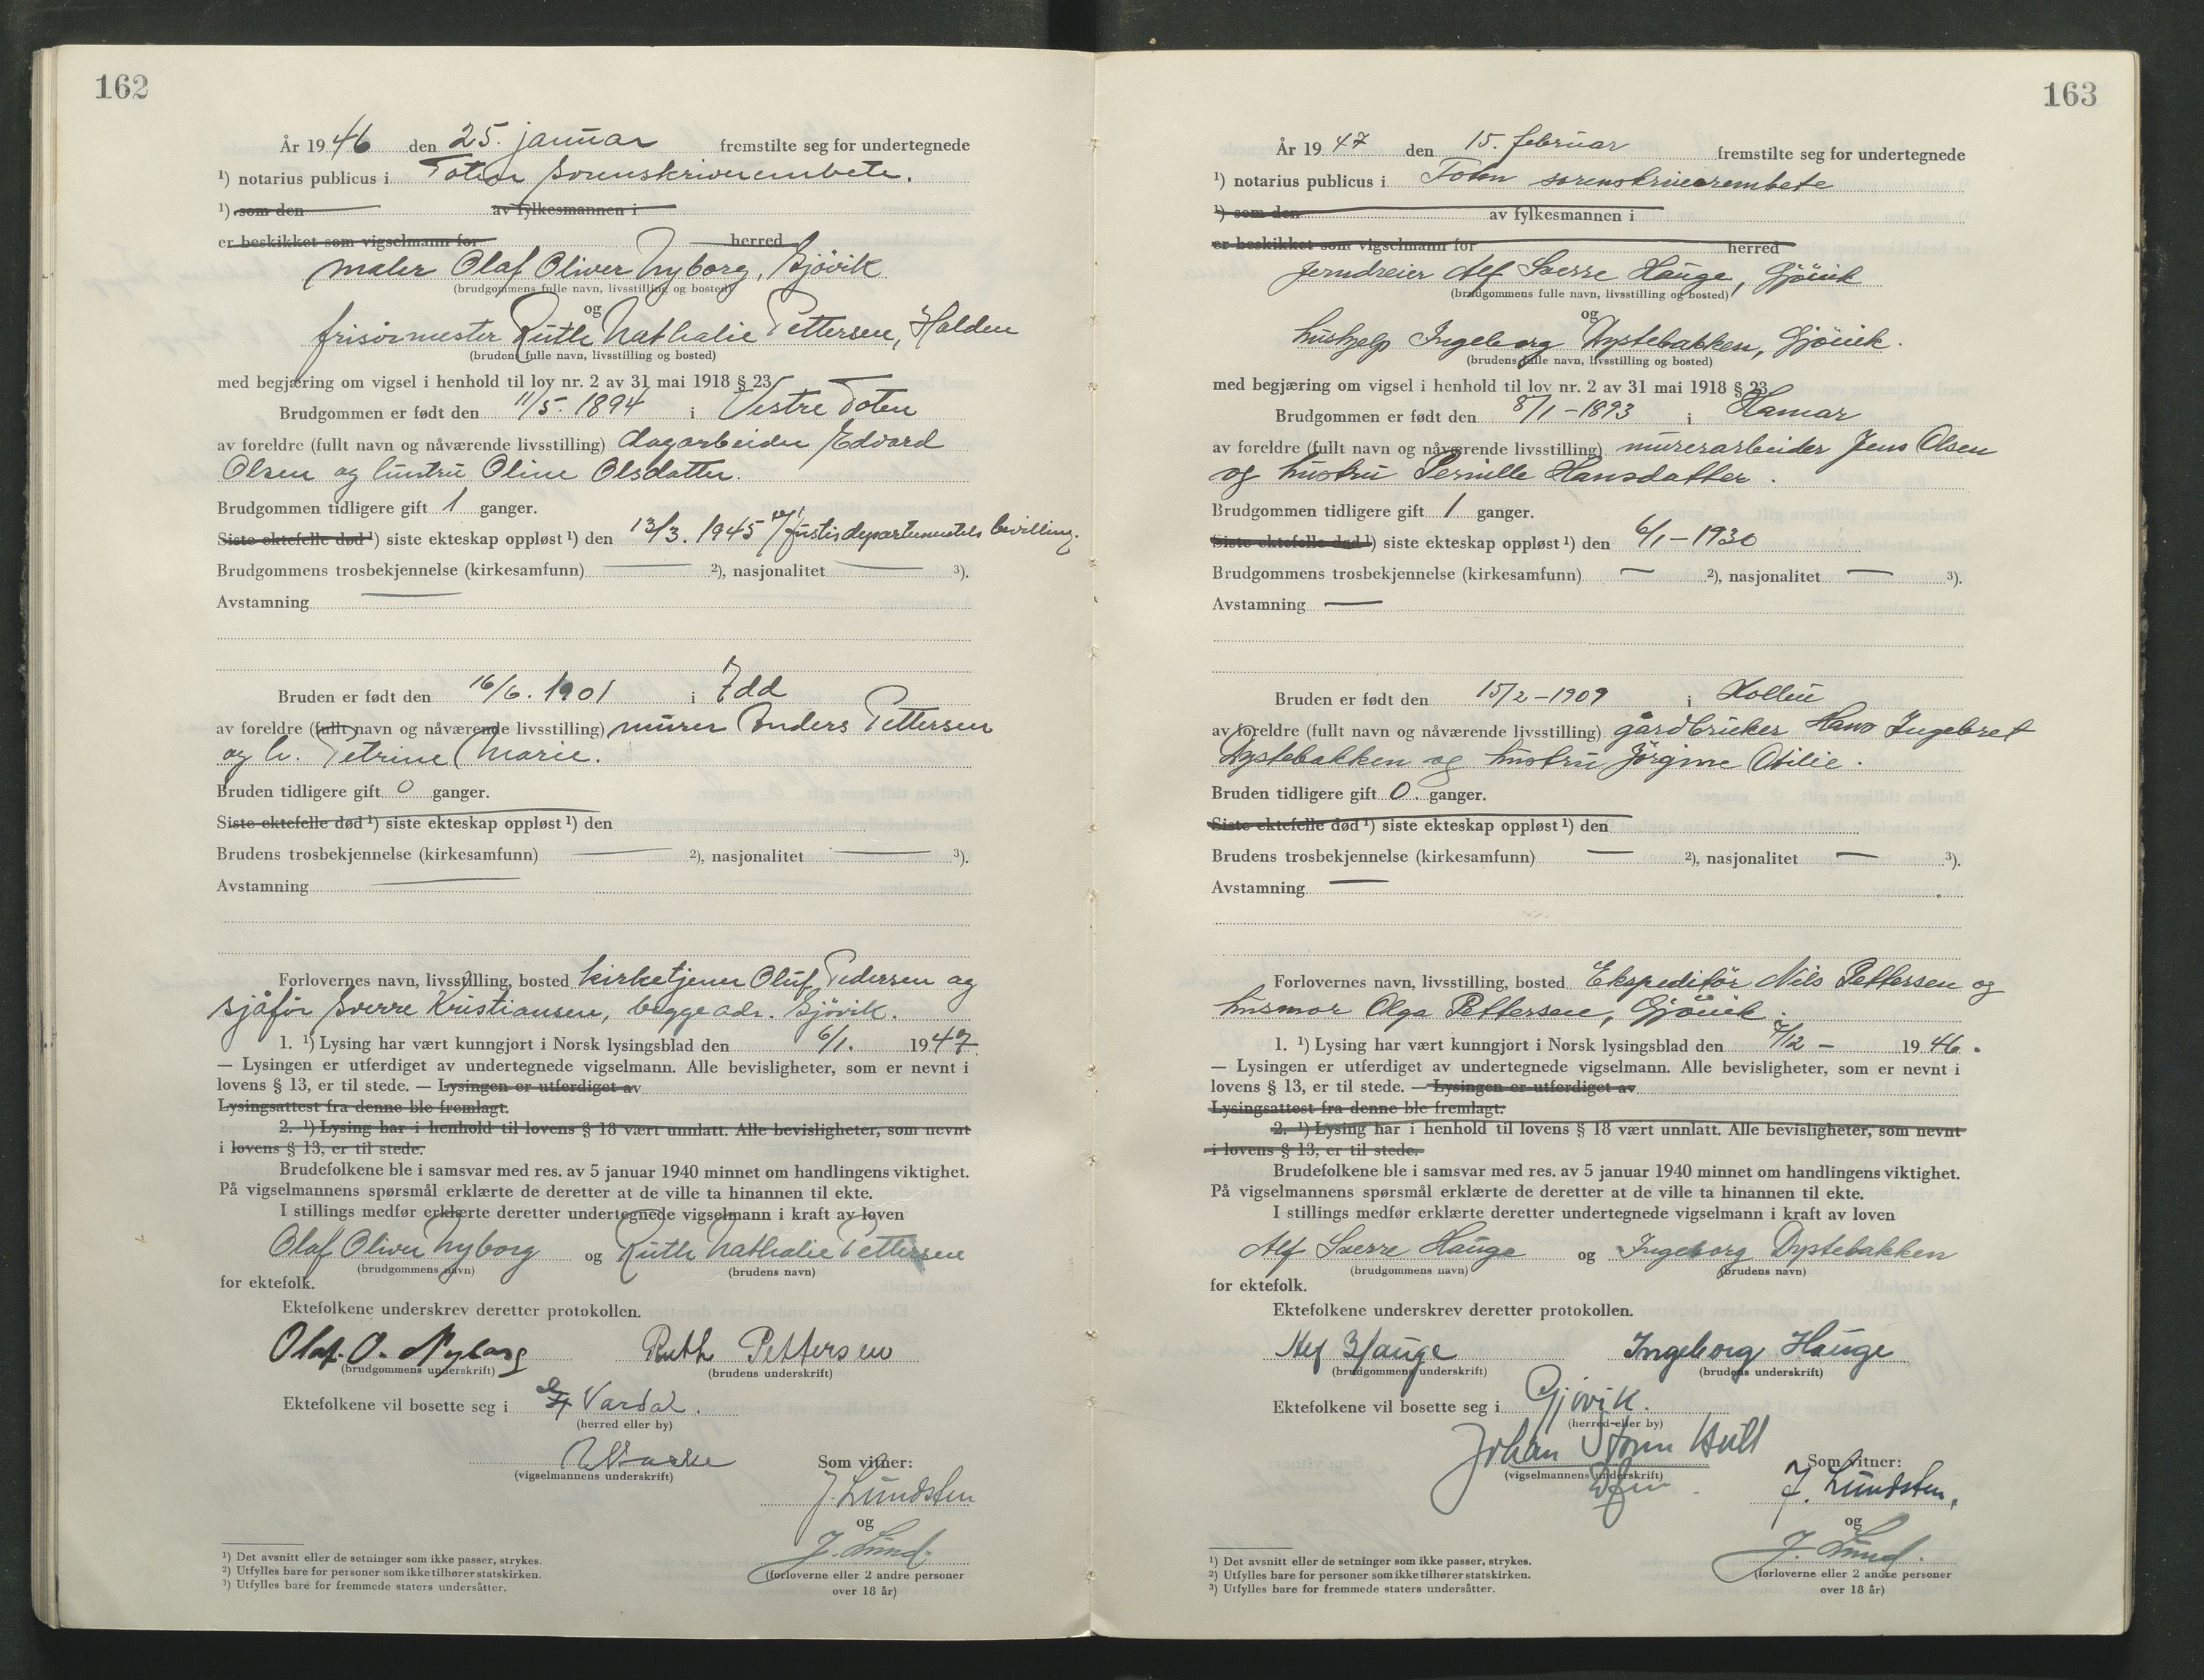 162
År 1946 den 25. januar fremstilte seg for undertegnede
¹) notarius publicus i Toten sorenskriverembete.
¹) som den av fylkesmannen i
er beskikket som vigselmann for herred
maler Olaf Oliver Nyborg, Gjövik
(brudgommens fulle navn, livsstilling og bosted)
og
frisörmester Ruth Nathalie Pettersen, Halden
(brudens fulle navn, livsstilling og bosted)
med begjæring om vigsel i henhold til lov nr. 2 av 31 mai 1918 § 23
Brudgommen er født den 11/5. 1894 i Vestre Toten
av foreldre (fullt navn og nåværende livsstilling) dagarbeider Edvard
Olsen og hustru Oline Olsdatter.
Brudgommen tidligere gift 1 ganger.
Siste ektefelle død ¹) siste ekteskap oppløst ¹) den 13/3. 1945 v/ justisdepartementets bevilling.
Brudgommens trosbekjennelse (kirkesamfunn) — ²), nasjonalitet — ³).
Avstamning —
Bruden er født den 16/6. 1901 i Idd
av foreldre (fullt navn og nåværende livsstilling) murer Anders Pettersen
og h. Petrine Marie.
Bruden tidligere gift 0 ganger.
Siste ektefelle død ¹) siste ekteskap oppløst ¹) den
Brudens trosbekjennelse (kirkesamfunn) — ²), nasjonalitet — ³).
Avstamning —
Forlovernes navn, livsstilling, bosted kirketjener Oluf Pedersen og
sjåför Sverre Kristiansen, begge adr. Gjövik.
1. ¹) Lysing har vært kunngjort i Norsk lysingsblad den 6/1. 1947.
— Lysingen er utferdiget av undertegnede vigselmann. Alle bevisligheter, som er nevnt i
lovens § 13, er til stede. — Lysingen er utferdiget av
Lysingsattest fra denne ble fremlagt.
2. ¹) Lysing har i henhold til lovens § 18 vært unnlatt. Alle bevisligheter, som nevnt
i lovens § 13, er til stede.
Brudefolkene ble i samsvar med res. av 5 januar 1940 minnet om handlingens viktighet.
På vigselmannens spørsmål erklærte de deretter at de ville ta hinannen til ekte.
I stillings medfør erklærte deretter undertegnede vigselmann i kraft av loven
Olaf Oliver Nyborg og Ruth Nathalie Pettersen
(brudgommens navn) (brudens navn)
for ektefolk.
Ektefolkene underskrev deretter protokollen.
Olaf. O. Nyborg Ruth Pettersen
(brudgommens underskrift) (brudens underskrift)
Ektefolkene vil bosette seg i Vardal.
(herred eller by)
(vigselmannens underskrift) Som vitner:
J. Lundsten
og
J. Lund.
(forloverne eller 2 andre personer
over 18 år)
¹) Det avsnitt eller de setninger som ikke passer, strykes.
²) Utfylles bare for personer som ikke tilhører statskirken.
³) Utfylles bare for fremmede staters undersåtter.
163
År 1947 den 15. februar fremstilte seg for undertegnede
¹) notarius publicus i Toten sorenskriverembete
¹) som den av fylkesmannen i
er beskikket som vigselmann for herred
jerndreier Alf Sverre Hauge, Gjövik
(brudgommens fulle navn, livsstilling og bosted)
og
hushjelp Ingeborg Dystebakken, Gjövik.
(brudens fulle navn, livsstilling og bosted)
med begjæring om vigsel i henhold til lov nr. 2 av 31 mai 1918 § 23
Brudgommen er født den 8/1 - 1893 i Hamar
av foreldre (fullt navn og nåværende livsstilling) murerarbeider Jens Olsen
og hustru Pernille Hansdatter.
Brudgommen tidligere gift 1 ganger.
Siste ektefelle død ¹) siste ekteskap oppløst ¹) den 6/1 - 1930
Brudgommens trosbekjennelse (kirkesamfunn) — ²), nasjonalitet — ³).
Avstamning —
Bruden er født den 15/2 - 1909 i Kolbu
av foreldre (fullt navn og nåværende livsstilling) gårdbruker Hans Ingebret
Dystebakken og hustru Jörgine Otilie.
Bruden tidligere gift 0. ganger.
Siste ektefelle død ¹) siste ekteskap oppløst ¹) den
Brudens trosbekjennelse (kirkesamfunn) — ²), nasjonalitet — ³).
Avstamning —
Forlovernes navn, livsstilling, bosted Ekspeditör Nils Pettersen og
husmor Olga Pettersen, Gjövik.
1. ¹) Lysing har vært kunngjort i Norsk lysingsblad den 7/12 - 1946.
— Lysingen er utferdiget av undertegnede vigselmann. Alle bevisligheter, som er nevnt i
lovens § 13, er til stede. — Lysingen er utferdiget av
Lysingsattest fra denne ble fremlagt.
2. ¹) Lysing har i henhold til lovens § 18 vært unnlatt. Alle bevisligheter, som nevnt
i lovens § 13, er til stede.
Brudefolkene ble i samsvar med res. av 5 januar 1940 minnet om handlingens viktighet.
På vigselmannens spørsmål erklærte de deretter at de ville ta hinannen til ekte.
I stillings medfør erklærte deretter undertegnede vigselmann i kraft av loven
Alf Sverre Hauge og Ingeborg Dystebakken
(brudgommens navn) (brudens navn)
for ektefolk.
Ektefolkene underskrev deretter protokollen.
Alf Hauge Ingeborg Hauge
(brudgommens underskrift) (brudens underskrift)
Ektefolkene vil bosette seg i Gjövik.
(herred eller by)
Johan Storm
(vigselmannens underskrift) Som vitner:
J. Lundsten,
og
J. Lund.
(forloverne eller 2 andre personer
over 18 år)
¹) Det avsnitt eller de setninger som ikke passer, strykes.
²) Utfylles bare for personer som ikke tilhører statskirken.
³) Utfylles bare for fremmede staters undersåtter.